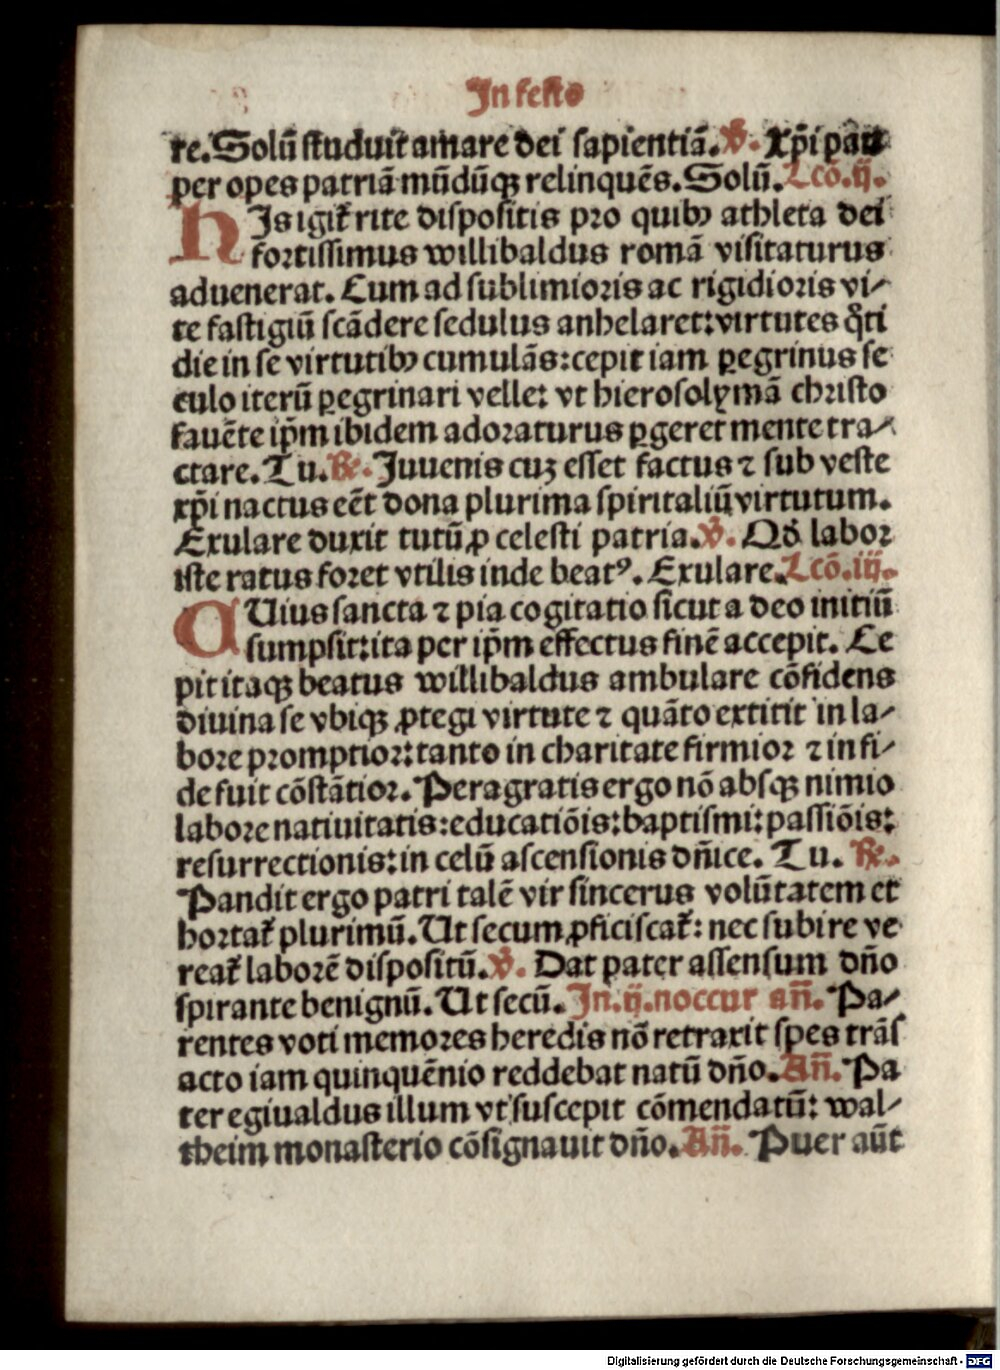 In festo
re. Solū studuit amare dei sapientiā. ℣. Xp̄i pau
per opes patriā mūdūqꝫ relinquēs. Solū. Lcō. ij.
HIs igit᷑ rite dispositis pro quibꝰ athleta dei
fortissimus willibaldus romā visitaturus
aduenerat. Cum ad sublimioris ac rigidioris vi⸗
te fastigiū scādere sedulus anhelaret: virtutes q̄ti
die in se virtutibꝰ cumulās: cepit iam ꝑegrinus se
culo iterū ꝑegrinari velle: vt hierosolymā christo
fauēte ip̄m ibidem adoraturus ꝑgeret mente tra⸗
ctare. Tu. ℟. Iuuenis cuꝫ esset factus ⁊ sub veste
xp̄i nactus eēt dona plurima spiritaliū virtutum.
Exulare duxit tutū ꝓ celesti patria. ℣. Qđ labor
iste ratus foret vtilis inde beatꝰ. Exulare. Lcō. iij.
CUius sancta ⁊ pia cogitatio sicut a deo initiū
sumpsit: ita per ip̄m effectus finē accepit. Ce
pit itaqꝫ beatus willibaldus ambulare cōfidens
diuina se vbiqꝫ ꝓtegi virtute ⁊ quāto extitit in la⸗
bore promptior: tanto in charitate firmior ⁊ in fi⸗
de fuit cōstātior. Peragratis ergo nō absqꝫ nimio
labore natiuitatis: educatiōis: baptismi: passiōis:
resurrectionis: in celū ascensionis dn̄ice. Tu. ℟.
Pandit ergo patri talē vir sincerus volūtatem et
hortat᷑ plurimū. Ut secum ꝓficiscat᷑: nec subire ve
reat᷑ laborē dispositū. ℣. Dat pater assensum dn̄o
spirante benignū. Ut secū. In. ij. noctur an̄. Pa⸗
rentes voti memores heredis nō retraxit spes trās
acto iam quinquēnio reddebat natū dn̄o. An̄. Pa
ter egiualdus illum vt suscepit cōmendatū: wal⸗
theim monasterio cōsignauit dn̄o. An̄. Puer aūt
Digitalisierung gefördert durch die Deutsche Forschungsgemeinschaft - DFG